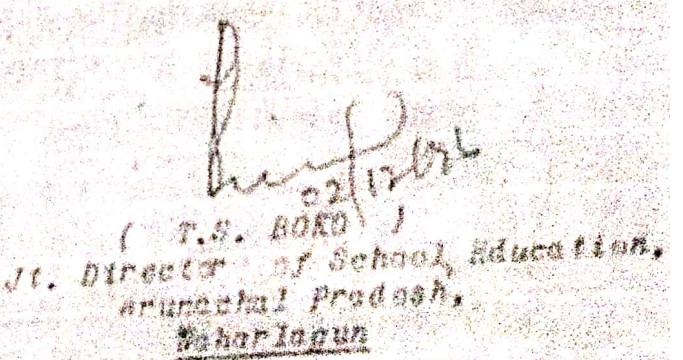 02/12/96
( T.S. BOKO )
Jt. Director of School Education,
Arunachal Pradesh,
Naharlagun